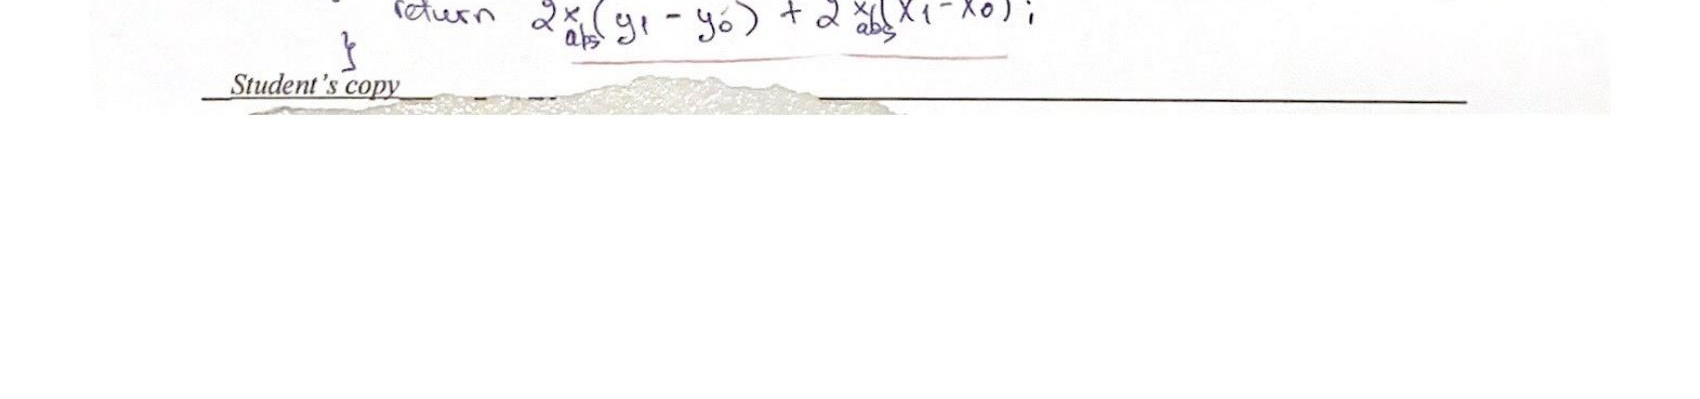 return 2*abs(y1 - y0) + 2*abs(x1 - x0);
}
Student's copy